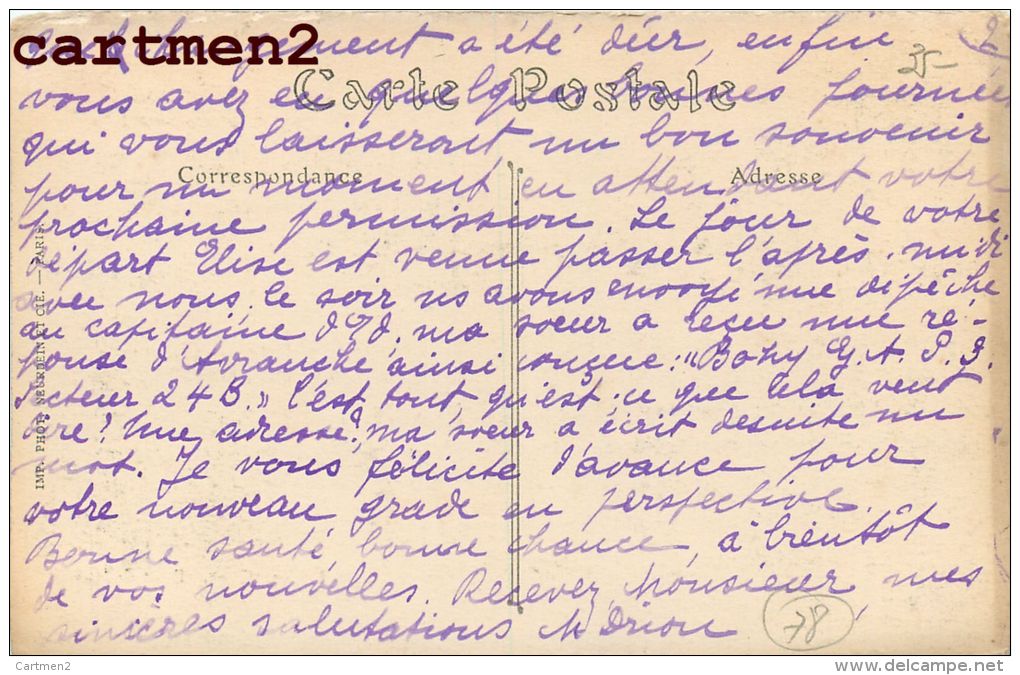 cartmen2
gement a été dur, enfin
2
25-
Carte Postale
vous avez eu quelques bonnes journées
qui vous laisseront un bon souvenir
Correspondance
Adresse
pour un moment, en attendant votre
prochaine permission. Le jour de votre
départ Elise est venue passer l'après-midi
avec nous, le soir ns avons envoyé une dépêche
au capitaine d'Yd. ma soeur a reçu une ré-
ponse d'Avranche ainsi conçue: "Bohy G.A.P.9.
secteur 24B." C'est tout, qu'est-ce que cela veut
dire? Une adresse?, ma soeur a écrit desuite un
mot. Je vous félicite d'avance pour
votre nouveau grade en perspective.
Bonne santé, bonne chance, à bientôt
de vos nouvelles. Recevez, Monsieur, mes
sincères salutations M Drion
78
IMP. PHOT. NEURDEIN ET CIE. — PARIS.
Cartmen2
www.delcampe.net